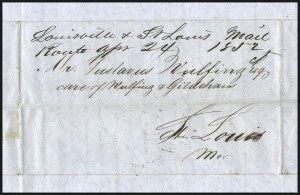 Louisville & St Louis Mail
Route Apr 24 1852
Mr. Gustavus Wulfing Esq
care of Wulfing &
St. Louis
Mo